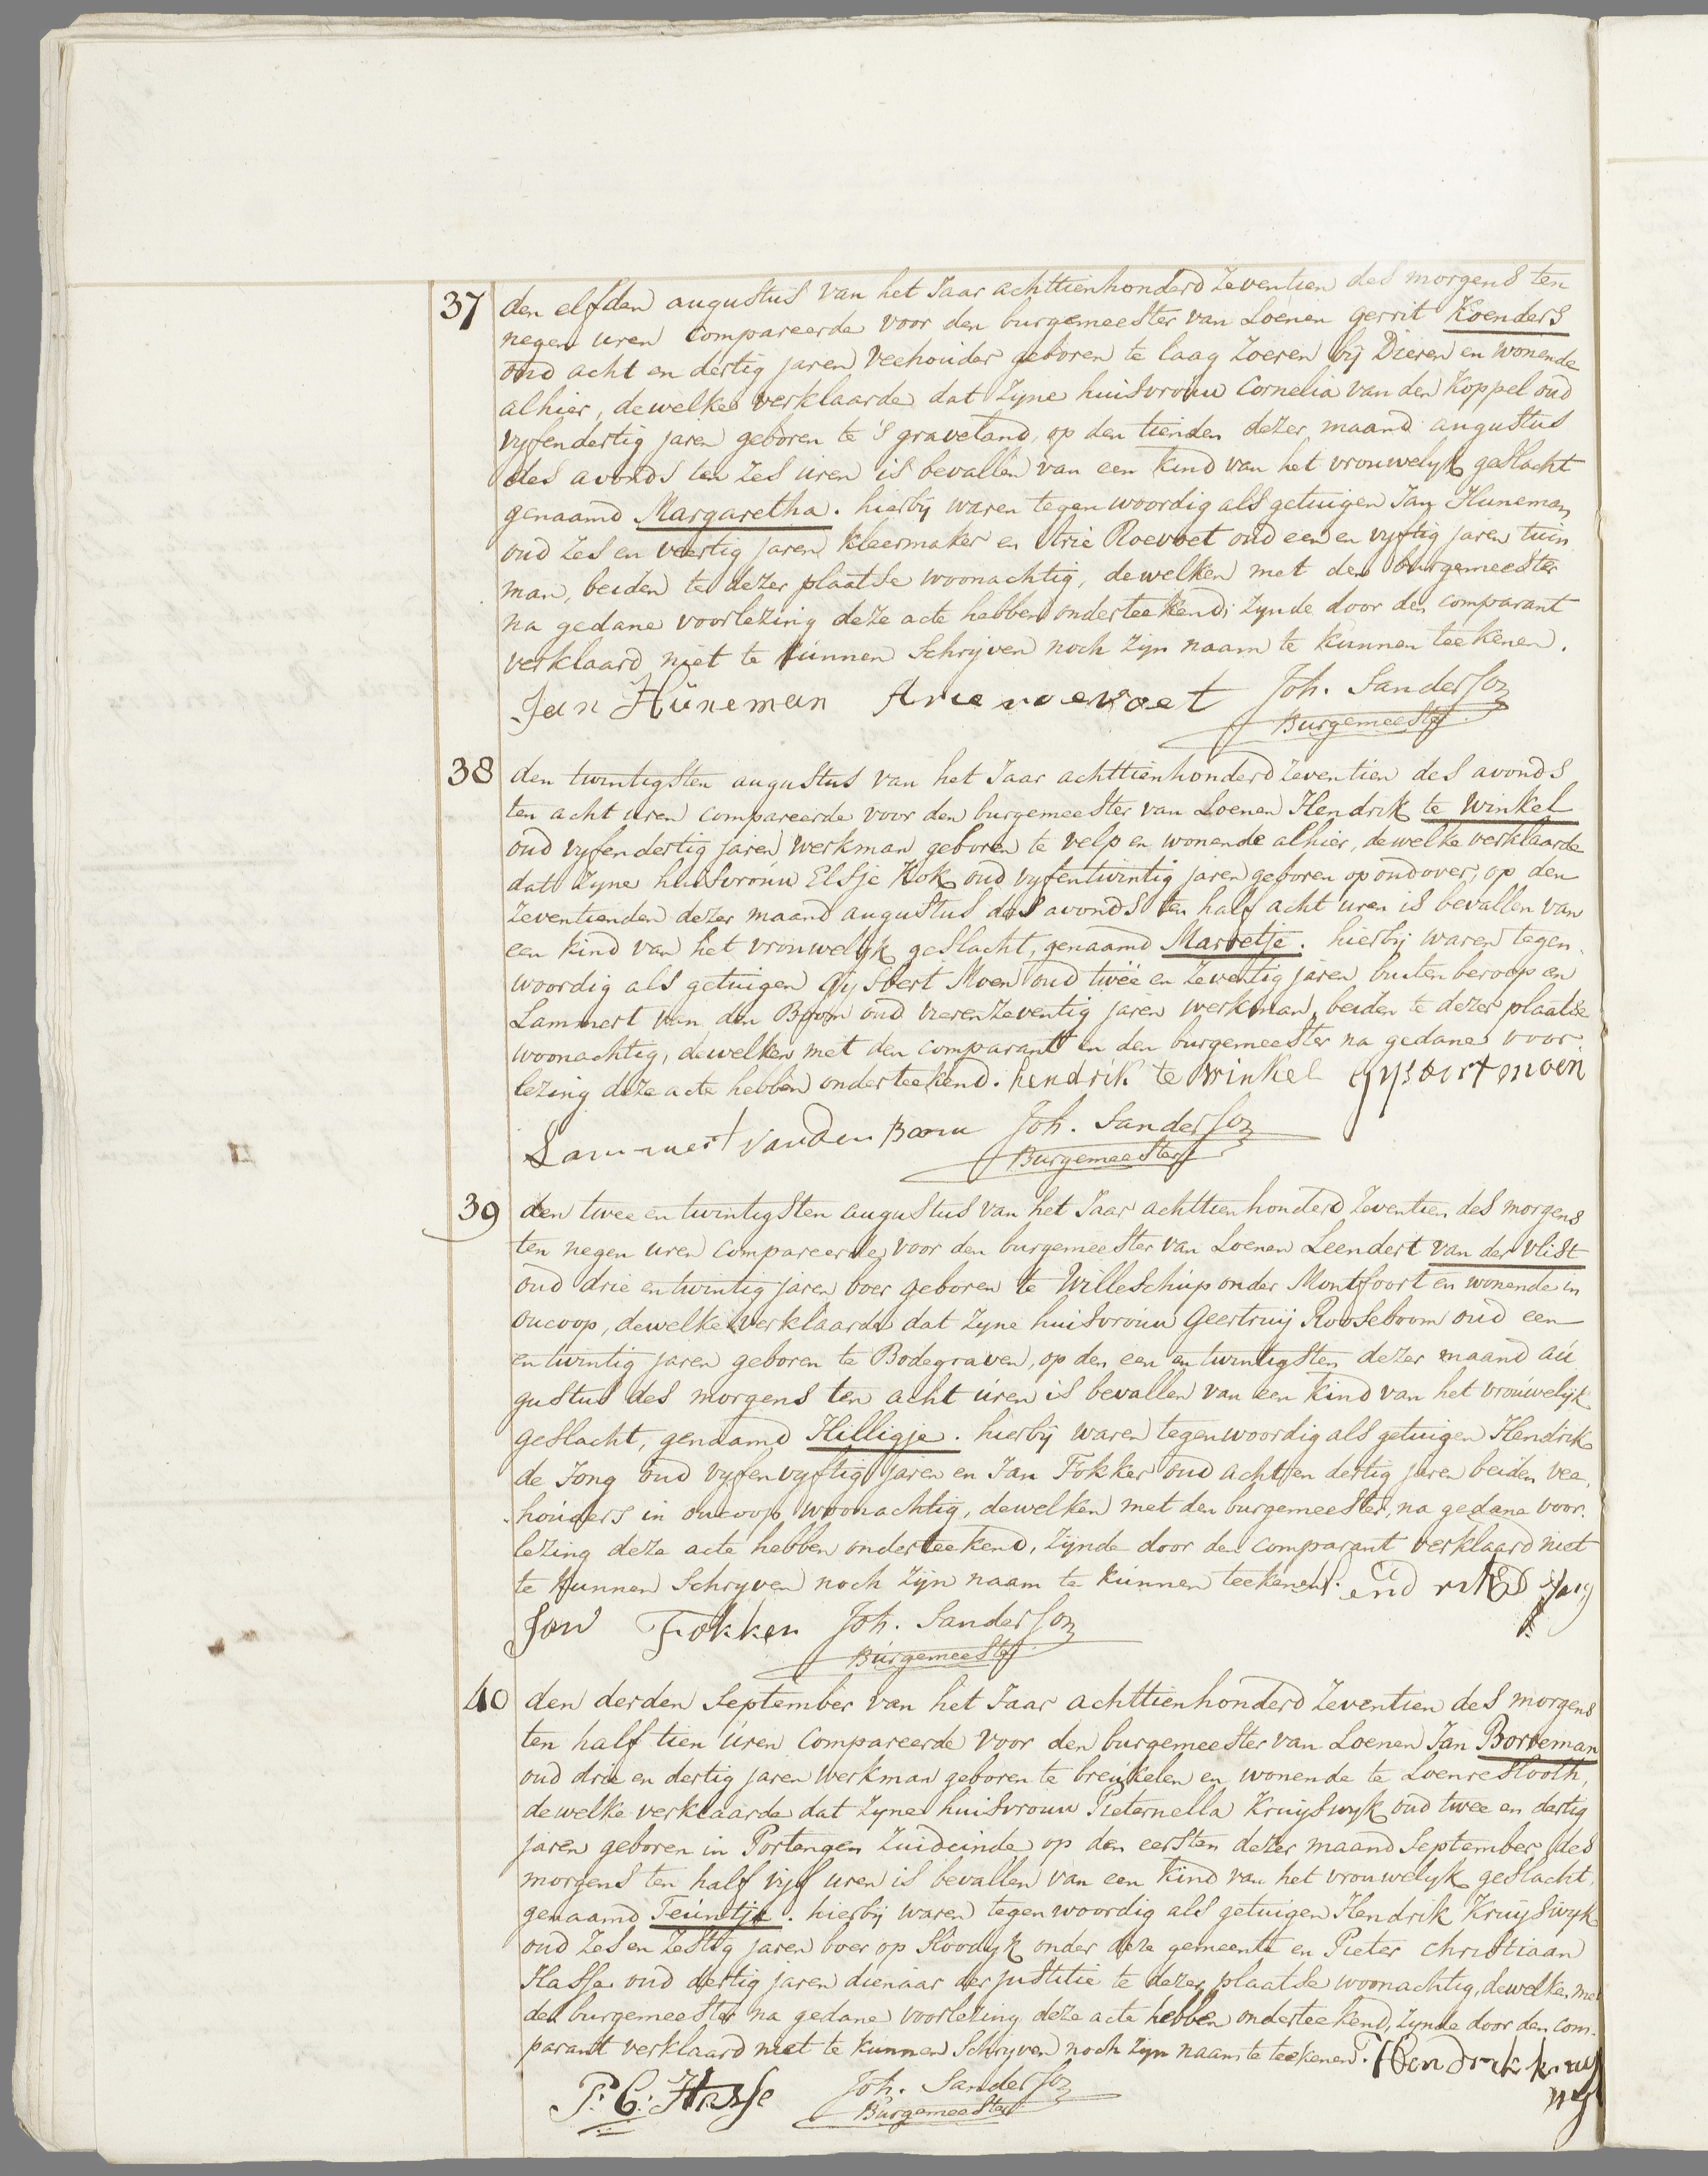 37 den elfden augustus van het Jaar achttienhonderd Zeventien des morgens ten
negen uren compareerde voor den burgemeester van Loenen Gerrit Koenders
oud acht en dertig jaren veehouder geboren te laag Zoeren bij Dieren en wonende
alhier, dewelke verklaarde dat Zyne huisvrouw Cornelia van den Koppel oud
vyfendertig jaren geboren te 's graveland, op den tienden dezer maand augustus
des avonds ten zes uren is bevallen van een kind van het vrouwelyk geslacht
genaamd Margaretha. hierbij waren tegenwoordig als getuigen Jan Huneman
oud zes en veertig jaren kleermaker en Arie Roevoet oud een en vyftig jaren tuin
man, beiden te dezer plaatse woonachtig, dewelken met den burgemeester
na gedane voorlezing deze acte hebben onderteekend; zynde door den comparant
verklaard niet te kunnen Schryven noch zijn naam te kunnen teekenen.
Jan Hüneman Arie roevoet Joh. Sanderson
Burgemeester
38 den twintigsten augustus van het Jaar achttienhonderd Zeventien des avonds
ten acht uren compareerde voor den burgemeester van Loenen Hendrik te Winkel
oud vyfendertig jaren werkman geboren te velp en wonende alhier, dewelke verklaarde
dat Zyne huisvrouw Elsje Kok oud vyfentwintig jaren geboren op ondover, op den
Zeventienden dezer maand augustus des avonds ten half acht uren is bevallen van
een kind van het vrouwelyk geslacht, genaamd Marretje. hierbij waren tegen
woordig als getuigen Gysbert Moen oud twee en Zeventig jaren buiten beroep en
Lammert van den Boom oud vierenzeventig jaren werkman, beiden te dezer plaatse
woonachtig, dewelken met den comparant en den burgemeester na gedane voor
lezing deze acte hebben onderteekend. hendrik te winkel gysbert moen
Lammert van den Boom Joh. Sanderson
Burgemeester
39 den twee en twintigsten augustus van het Jaar achttienhonderd Zeventien des morgens
ten negen uren compareerde voor den burgemeester van Loenen Leendert van der Vlist
oud drie en twintig jaren boer geboren te Willeschup onder Montfoort en wonende in
oucoop, dewelke verklaarde dat Zyne huisvrouw Geertruij Rooseboom oud een
en twintig jaren geboren te Bodegraven, op den een en twintigsten dezer maand au
gustus des morgens ten acht uren is bevallen van een kind van het vrouwelijk
geslacht, genaamd Hilligje. hierbij waren tegenwoordig als getuigen Hendrik
de Jong oud vyfenvyftig jaren en Jan Fokker oud acht en dertig jaren beiden vee
houders in oucoop woonachtig, dewelken met den burgemeester, na gedane voor
lezing deze acte hebben onderteekend, zijnde door den comparant verklaard niet
te kunnen Schryven noch zijn naam te kunnen teekenen.
Jan Fokker Joh. Sanderson
Burgemeester
40 den derden September van het Jaar achttienhonderd Zeventien des morgens
ten half tien uren compareerde voor den burgemeester van Loenen Jan Borreman
oud drie en dertig jaren werkman geboren te breukelen en wonende te Loenreslooth,
dewelke verklaarde dat Zyne huisvrouw Pieternella Kruyswyk oud twee en dertig
jaren geboren in Portengen Zuideinde op den eersten dezer maand September des
morgens ten half vijf uren is bevallen van een kind van het vrouwelyk geslacht,
genaamd Teuntje. hierbij waren tegenwoordig als getuigen Hendrik Kruyswyk
oud zes en zestig jaren boer op Sloodyk onder deze gemeente en Pieter Christiaan
Hasse oud dertig jaren dienaar der justitie te dezer plaatse woonachtig, dewelken met
den burgemeester na gedane voorlezing deze acte hebben onderteekend, zynde door den com
parant verklaard niet te kunnen Schryven noch zijn naam te teekenen. Hendrik kruys
wyk
P. C. Hasse Joh. Sanderson
Burgemeester